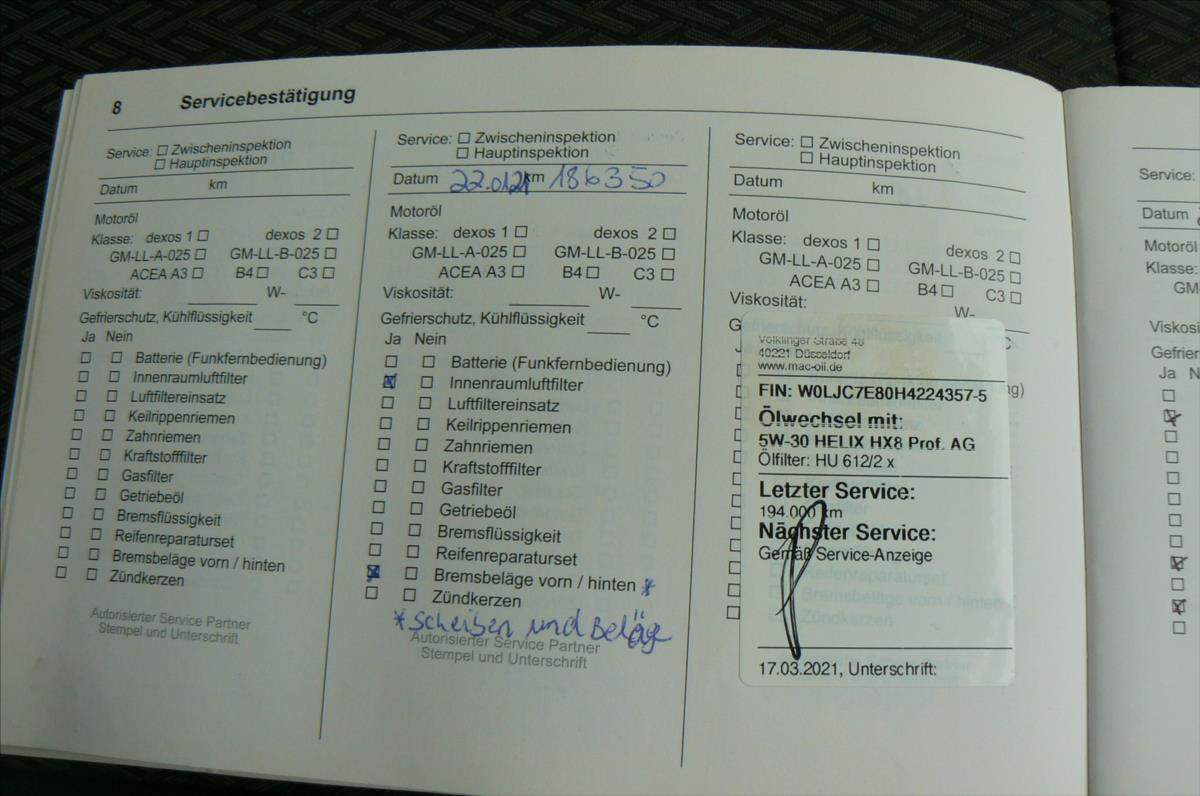 8 Servicebestätigung
Service: ☐ Zwischeninspektion
☐ Hauptinspektion
Datum km
Motoröl
Klasse: dexos 1 ☐ dexos 2 ☐
GM-LL-A-025 ☐ GM-LL-B-025 ☐
ACEA A3 ☐ B4 ☐ C3 ☐
Viskosität: ____ W- ____
Gefrierschutz, Kühlflüssigkeit ____ °C
Ja Nein
☐ ☐ Batterie (Funkfernbedienung)
☐ ☐ Innenraumluftfilter
☐ ☐ Luftfiltereinsatz
☐ ☐ Keilrippenriemen
☐ ☐ Zahnriemen
☐ ☐ Kraftstofffilter
☐ ☐ Gasfilter
☐ ☐ Getriebeöl
☐ ☐ Bremsflüssigkeit
☐ ☐ Reifenreparaturset
☐ ☐ Bremsbeläge vorn / hinten
☐ ☐ Zündkerzen
Autorisierter Service Partner
Stempel und Unterschrift
Service: ☐ Zwischeninspektion
☐ Hauptinspektion
Datum 22.0121 km 186350
Motoröl
Klasse: dexos 1 ☐ dexos 2 ☐
GM-LL-A-025 ☐ GM-LL-B-025 ☐
ACEA A3 ☐ B4 ☐ C3 ☐
Viskosität: ____ W- ____
Gefrierschutz, Kühlflüssigkeit ____ °C
Ja Nein
☐ ☐ Batterie (Funkfernbedienung)
☒ ☐ Innenraumluftfilter
☐ ☐ Luftfiltereinsatz
☐ ☐ Keilrippenriemen
☐ ☐ Zahnriemen
☐ ☐ Kraftstofffilter
☐ ☐ Gasfilter
☐ ☐ Getriebeöl
☐ ☐ Bremsflüssigkeit
☐ ☐ Reifenreparaturset
☒ ☐ Bremsbeläge vorn / hinten *
☐ ☐ Zündkerzen
* Scheiben und Beläge
Autorisierter Service Partner
Stempel und Unterschrift
Service: ☐ Zwischeninspektion
☐ Hauptinspektion
Datum km
Motoröl
Klasse: dexos 1 ☐ dexos 2 ☐
GM-LL-A-025 ☐ GM-LL-B-025 ☐
ACEA A3 ☐ B4 ☐ C3 ☐
Viskosität: W-
Gefrierschutz, Kühlflüssigkeit
Völklinger Straße 40
40221 Düsseldorf
www.mac-oil.de
FIN: W0LJC7E80H4224357-5
Ölwechsel mit:
5W-30 HELIX HX8 Prof. AG
Ölfilter: HU 612/2 x
Letzter Service:
194.000 km
Nächster Service:
Gemäß Service-Anzeige
Reifenreparaturset
Bremsbeläge vorn / hinten
Zündkerzen
17.03.2021, Unterschrift:
Service:
Datum
Motoröl
Klasse:
GM-
Viskosi
Gefrier
Ja N